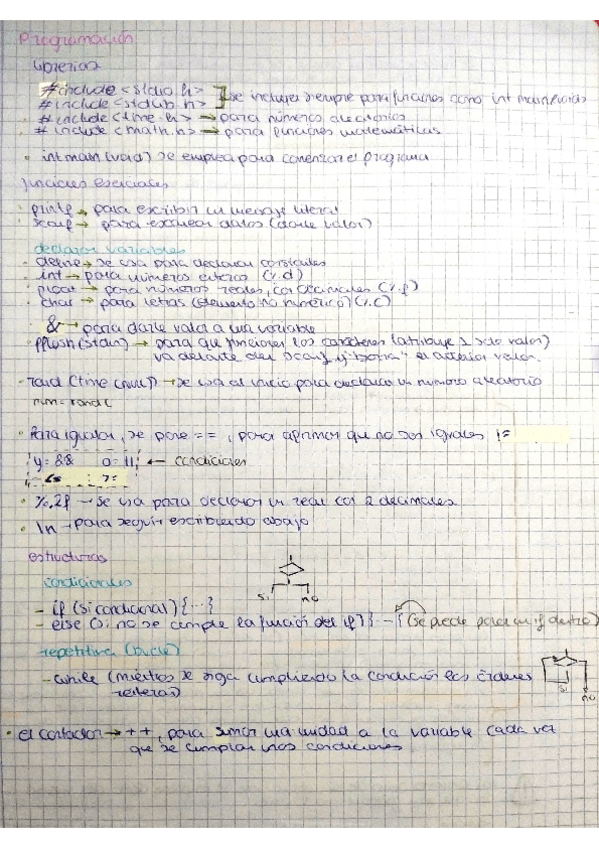 Programación
librerias
#include <stdio.h>
#include <stdlib.h> ] se incluyen siempre para funciones como int main(void)
#include <time.h> → para números aleatorios
#include <math.h> → para funciones matemáticas
· int main(void) se emplea para comenzar el programa
funciones esenciales
· printf → para escribir un mensaje literal
· scanf → para escanear datos (darle valor)
declarar variables
- define → se usa para declarar constantes
- int → para números enteros (%d)
- float → para números reales, con decimales (%f)
- char → para letras (elemento no numérico) (%c)
· & → para darle valor a una variable
· fflush(stdin) → para que funcionen los caracteres (atribuye 1 solo valor)
va delante del scanf y "borra" el anterior valor.
· rand (time(null)) → se usa al inicio para declarar un número aleatorio
num = rand(
· Para igualar, se pone ==, para afirmar que no son iguales !=
y = && o = || ← condiciones
· %.2f → se usa para declarar un real con 2 decimales
· \n → para seguir escribiendo abajo
estructuras
condicionales
si no
- if (si condicional) {...}
- else (si no se cumple la función del if) } - { (se puede para un if dentro)
repetitiva (bucle)
- while (mientras se siga cumpliendo la condición las órdenes
reiteras)
si
no
· el contador → ++, para sumar una unidad a la variable cada vez
que se cumplan unas condiciones